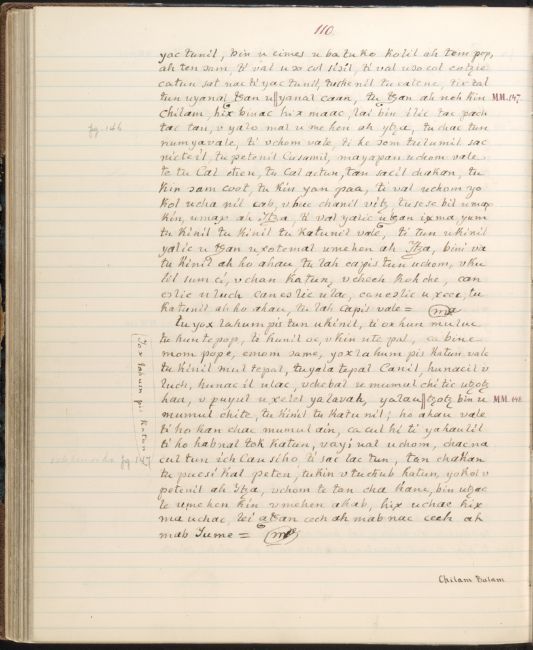 110
yac tunil, bin u cimes u batuko kolil ah tem pop,
ah ten sam, ti val u xo col sisil, ti val u xo col
catun sat nac ti yac tunil, tix tal
tun uyanal than u yanal caan, tu than ah noh kin MM.147.
Chilam, hix binac hix maac, lai bin ilic tac pach
fg. 146 tac tan, u yalo mal u mehen ah ytza, tu chac tun
num ya vale, ti vchom vale, ti he som tulumil sac
nicteil, tu petenil Cusamil, mayapan uchom vale
te tu Cal chen, tu Cal actun, tan sacil chakan, tu
kin sam cvot, tu kin yan paa, ti val uchom yo
kol ucha nil cab, vbuc chanil vitz, bil u max
kin, u max ah Itza, ti val yalic u than ixma yum
tu kinil tu kinil tu katunil vale, ti tun u kinil
yalic u than u xotemal u mehen ah Itza, bini va
tu kinil ah ho ahau, tu lah capis tun uchom, vku
lil sum ci, vchan Katun, vchech kohche, can
eslic u luch can eslic u lac, can eslic u xeec, tu
katunil ah ho ahau, tu lah capis vale =
tu yox lahum pis tun u kinil, ti ox hun muluc
tu hunte pop, te hunil oc, vkin ute pal, ca bine
mom pope, emom same, yox lahum pis Katun vale
tu kinil mul tepal, tu yala tepal Canil, hunacil v
luch, hunacil ulac, vchebal u mumul chi tic utzotz
hau, v puyul u xelel ya lavah, yalau tzotz bin u MM.148.
mumul chite, tu kinil tu katunil; ho ahau vale
ti ho kan chac mumul ain, ca cul hi ti yahaulil
ti ho habnal tok katun, vayi nal uchom, chacna
cul tun ich Cansiho, ti sac lac tun, tan chakan
tu pucsikal peten, tu kin v tuchub katun, yokol v
petenil ah Itza, vchom te tan cha kane, bin utzac
le u mehen kin v mehen akab, hix uchac hix
ma uchac, lei a than cech ah mab nac cech ah
mab Sume =
Yox lahun pis Katun
fg. 147
Chilam Balam